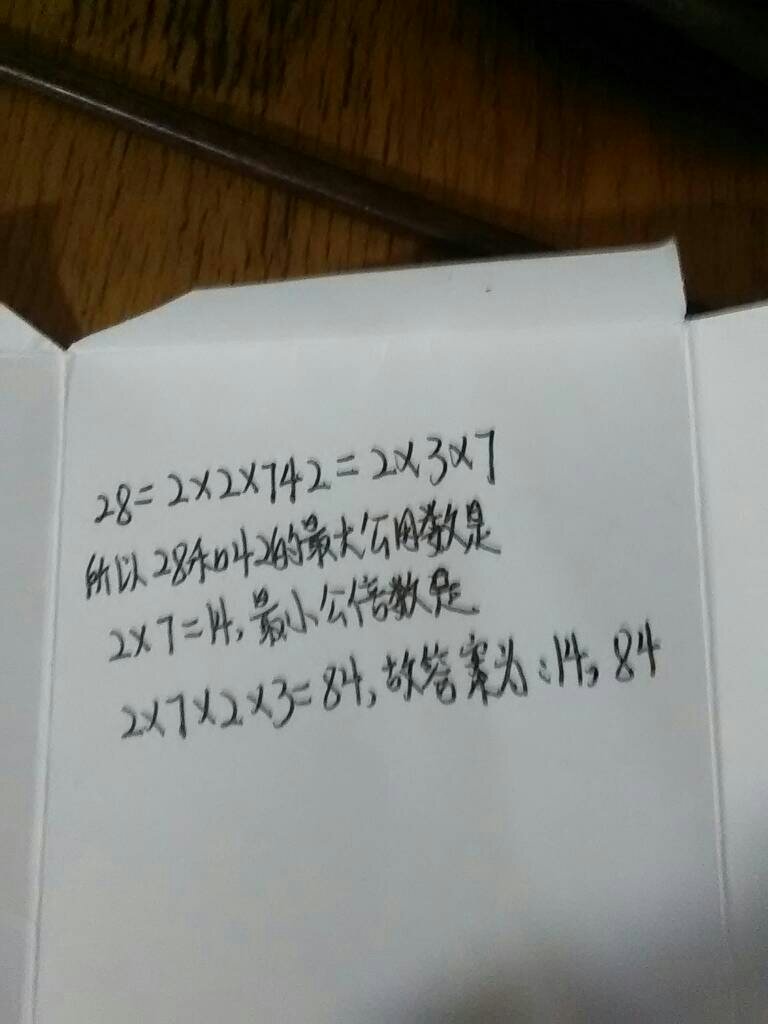 28=2×2×742=2×3×7
所以28和42的最大公因数是
2×7=14,最小公倍数是
2×7×2×3=84,故答案为:14,84